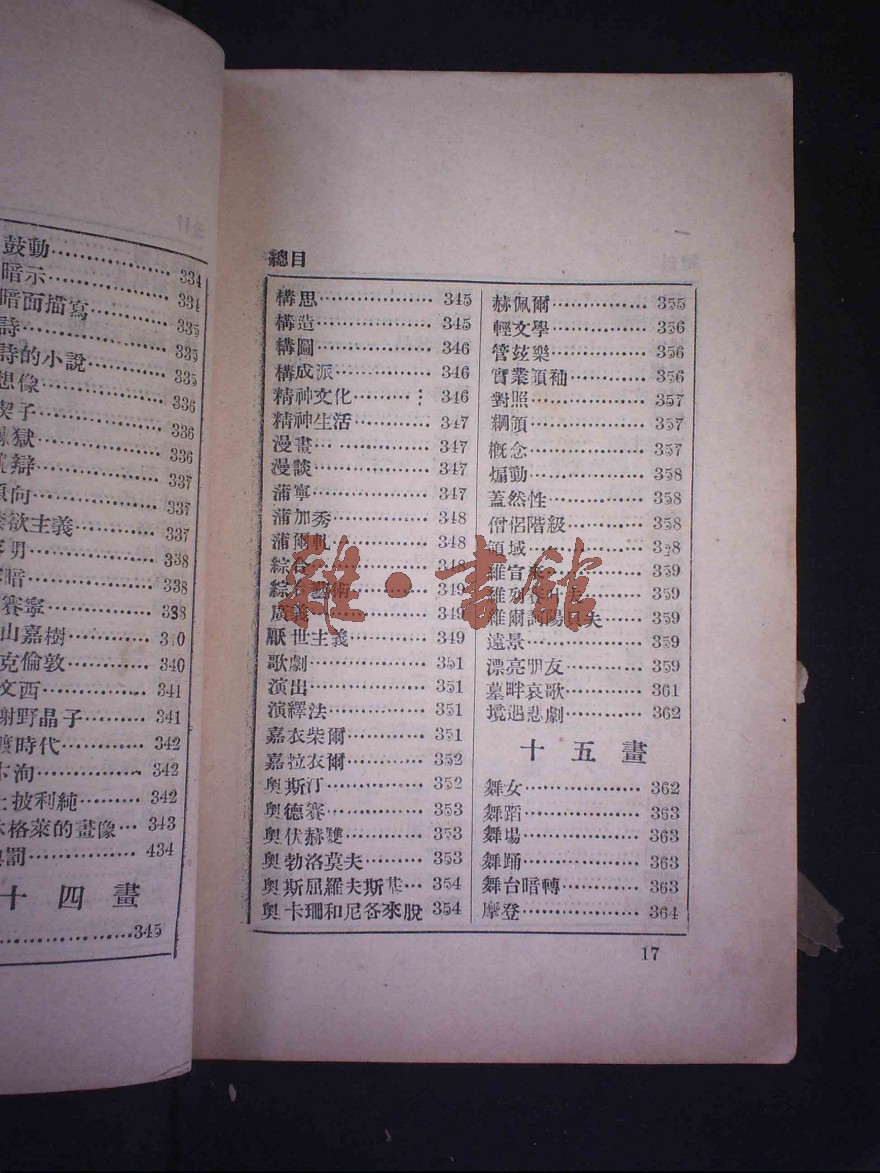 鼓動……………334
暗示……………334
暗面描寫………335
詩………………335
詩的小說………335
想像……………336
楔子……………336
獄……………336
辯……………337
傾向……………337
欲主義………337
男……………338
暗……………338
賽寧…………338
山嘉樹………340
克倫敦………340
文西…………341
謝野晶子………341
時代…………342
洵……………342
士披利純………342
格萊的畫像…343
罰……………434
十四畫
……………345
總目
構思……………345
構造……………345
構圖……………346
構成派…………346
精神文化………346
精神生活………347
漫畫……………347
漫談……………347
蒲寧……………347
蒲加秀…………348
蒲爾軋…………348
綜合……………348
綜合藝術………349
廣義……………349
厭世主義………349
歌劇……………351
演出……………351
演繹法…………351
嘉衣柴爾………351
嘉拉衣爾………352
奧斯汀…………352
奧德賽…………353
奧伏赫雙………353
奧勃洛莫夫……353
奧斯屈羅夫斯基…354
奧卡珊和尼各來脫 354
赫佩爾…………355
輕文學…………356
管弦樂…………356
實業領袖………356
對照……………357
綱領……………357
概念……………357
煽動……………358
蓋然性…………358
僧侶階級………358
領域……………358
維……………359
維……………359
維爾……………359
遠景……………359
漂亮朋友………359
墓畔哀歌………361
境遇悲劇………362
十五畫
舞女……………362
舞蹈……………363
舞場……………363
舞踊……………363
舞台暗轉………363
摩登……………364
17
雜·書館